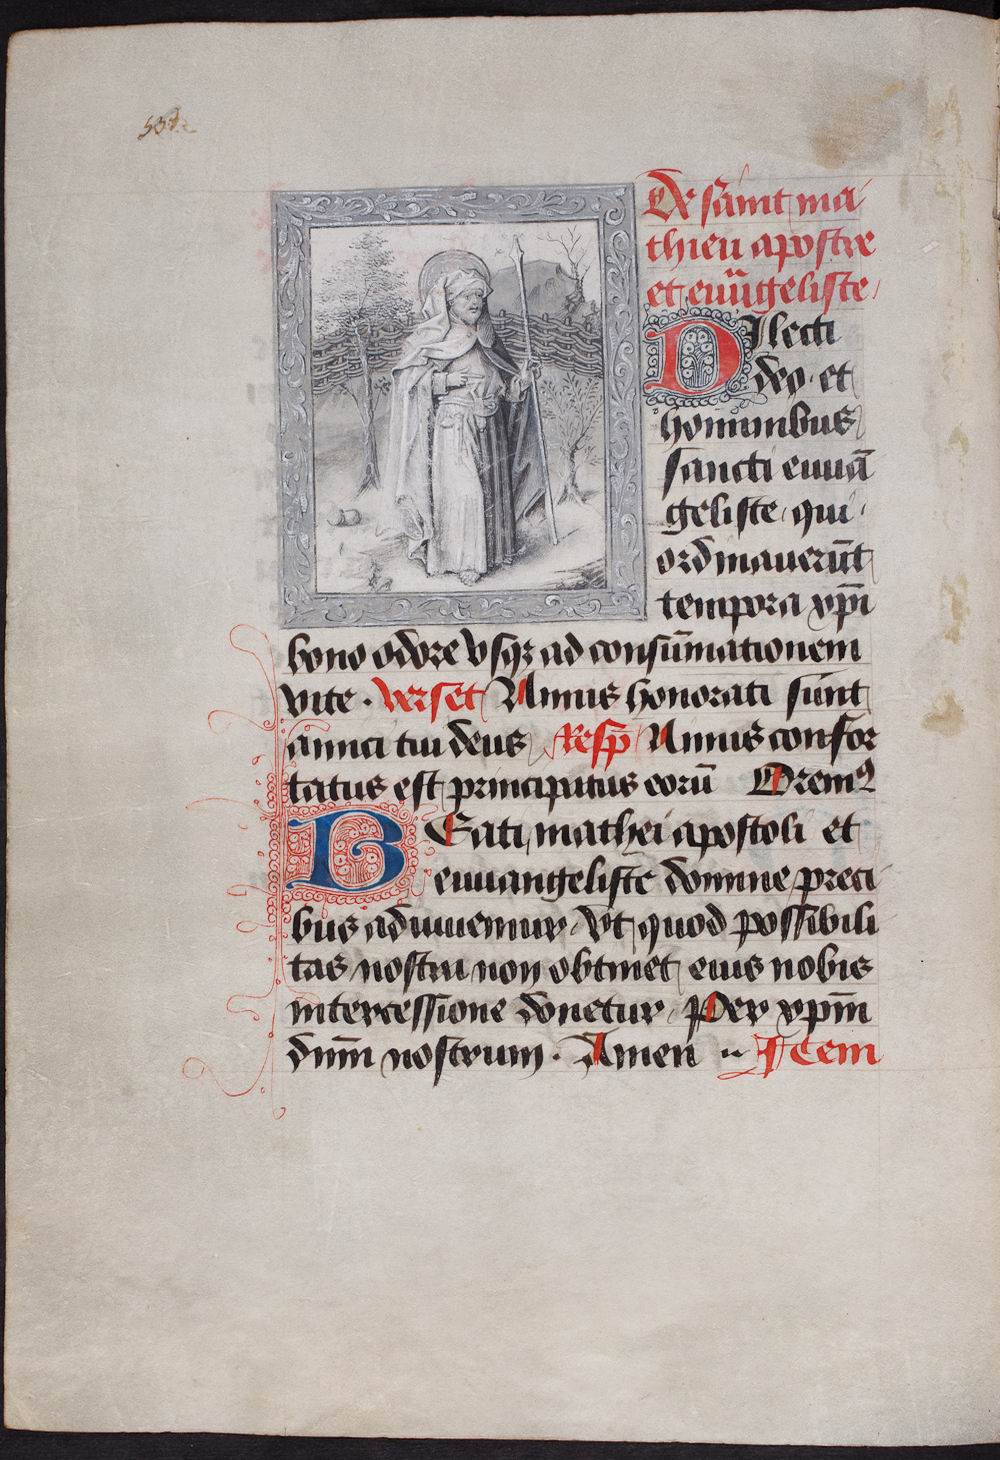 De saint ma
thieu apostre
et euūgeliste
Dilecti
deo et
hominibus
sancti euuā
geliste qui
ordinauerūt
tempora xp̄i
bono odore vsqꝫ ad consūmationem
vite · verset Nimis honorati sunt
amici tui deus Resp̄ Nimis confor
tatus est principatus eorū Oremꝰ
Beati mathei apostoli et
euuangeliste domine preci
bus adiuuemur vt quod possibili
tas nostra non obtinet eius nobis
intercessione donetur Per xp̄m
dn̄m nostrum · Amen .. Item